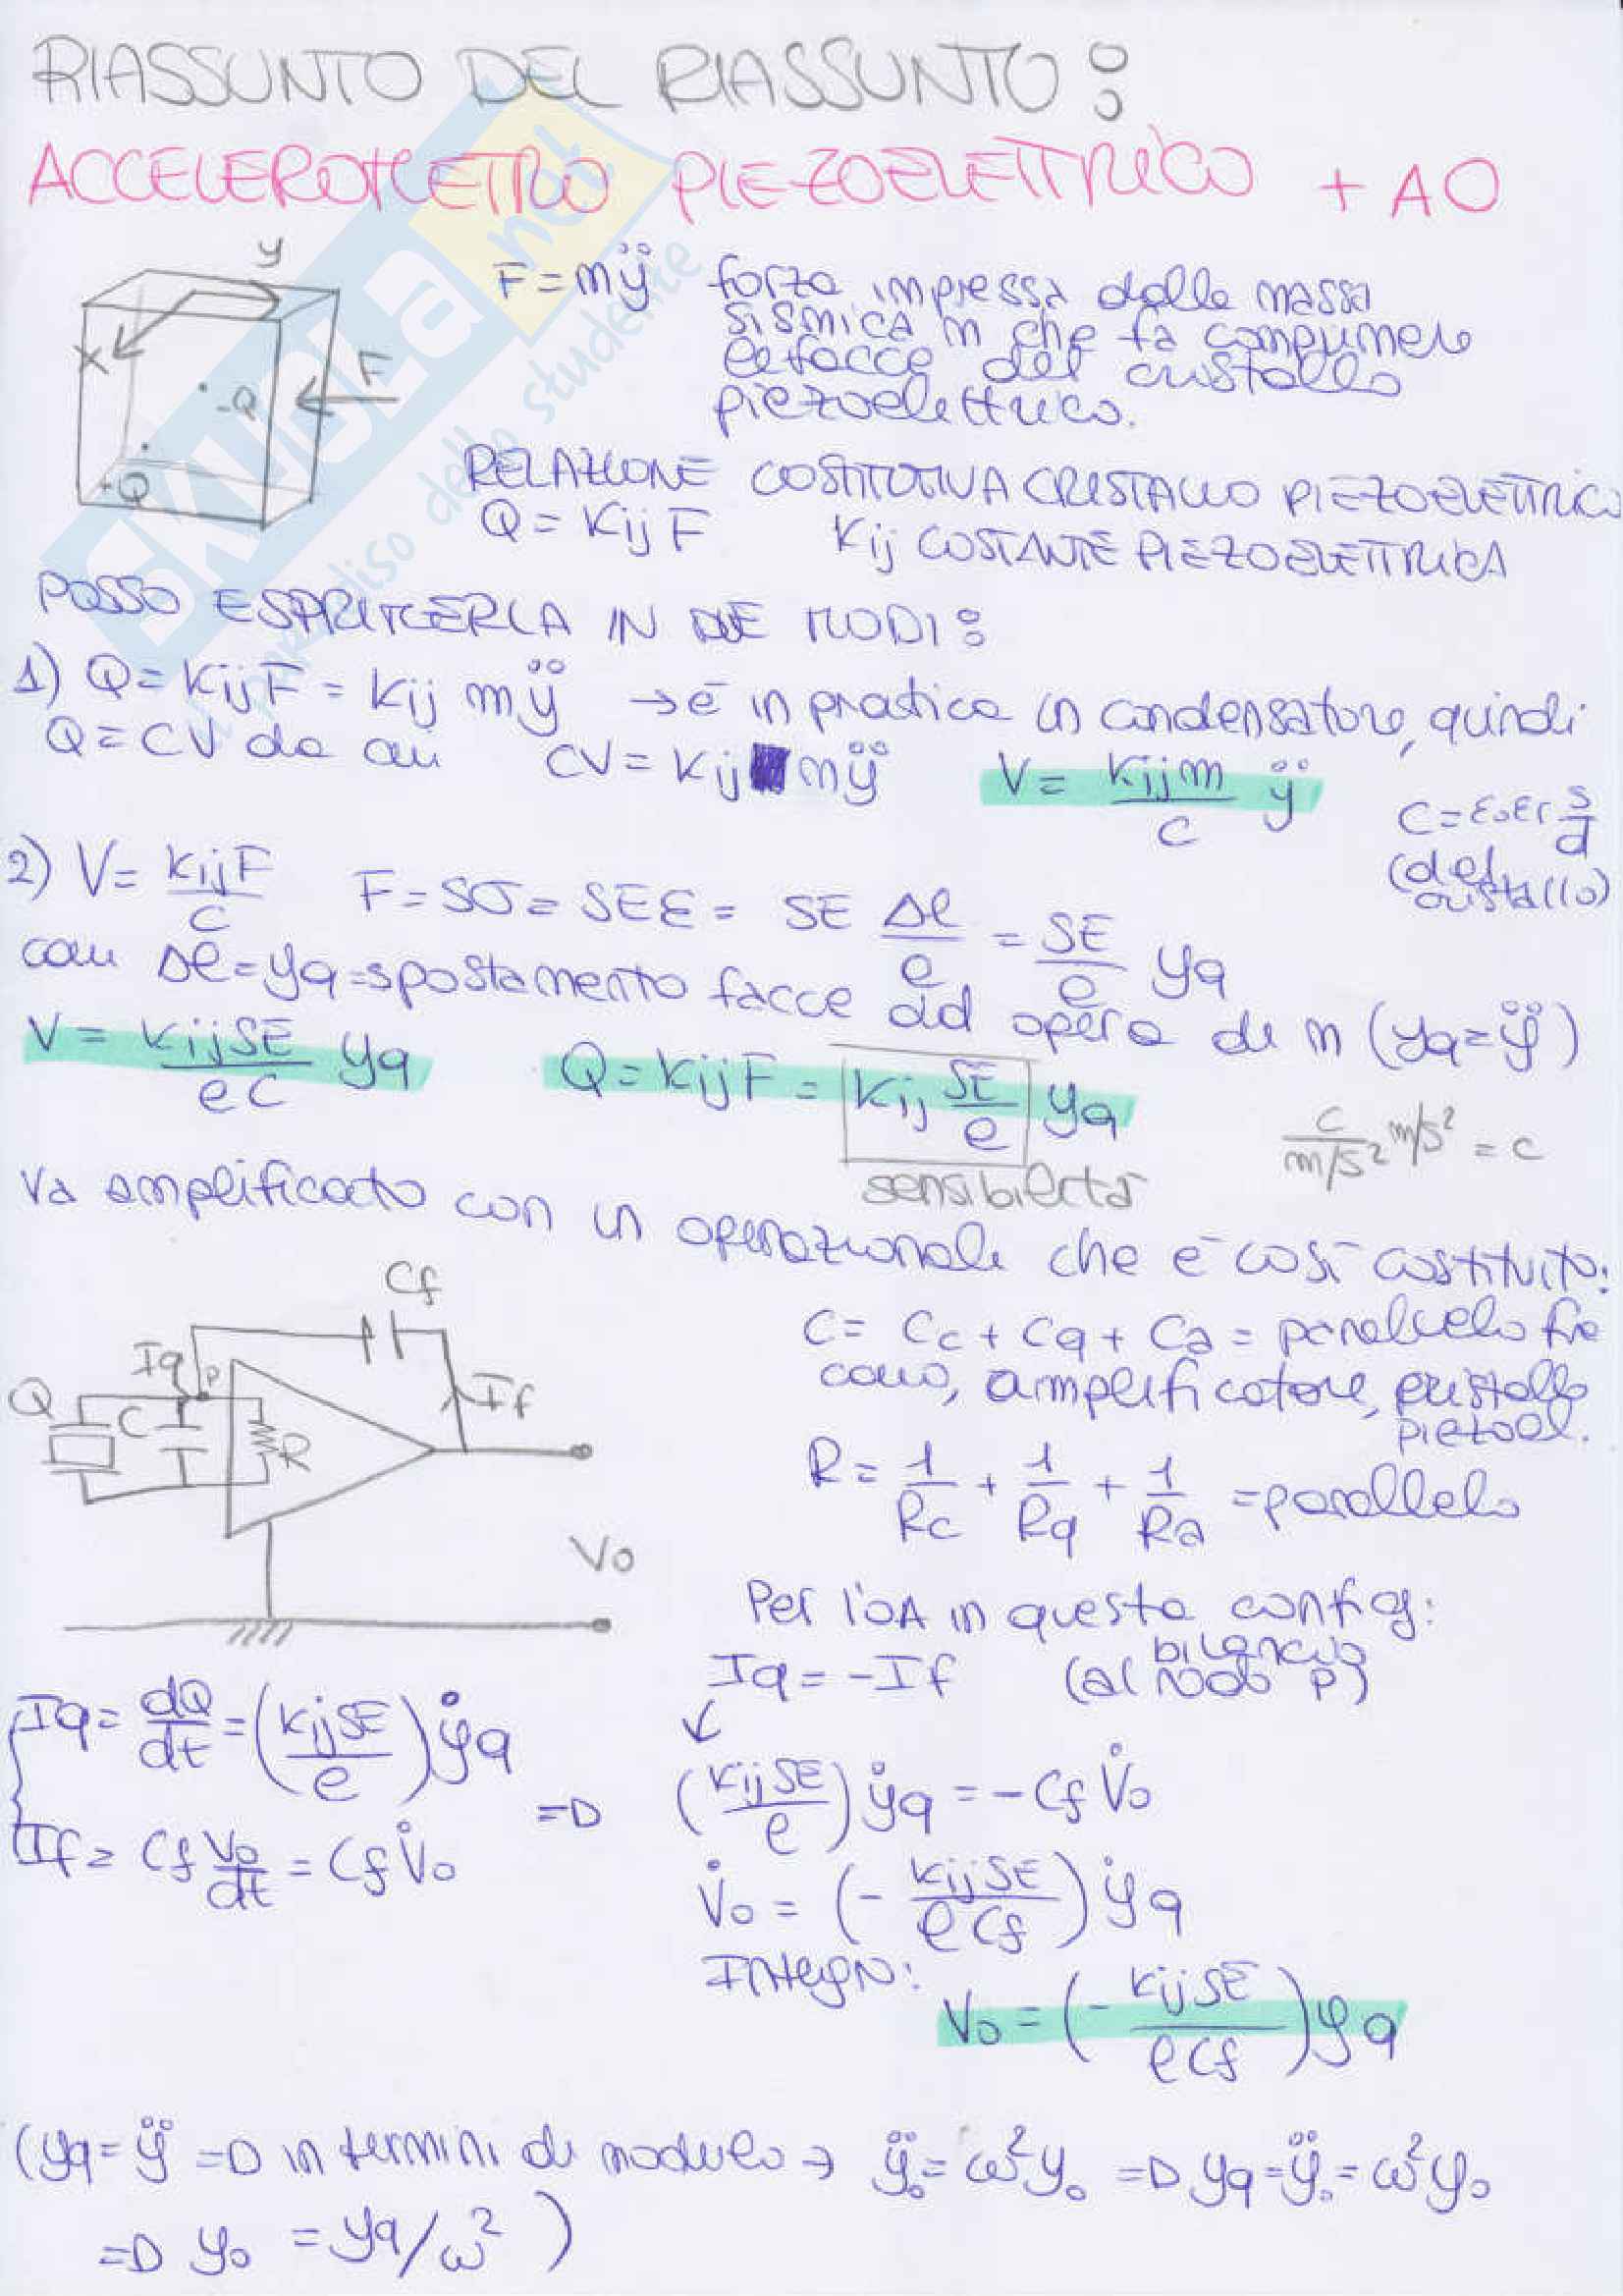 RIASSUNTO DEL RIASSUNTO:
ACCELEROMETRO PIEZOELETTRICO + AO
y
F = mÿ forza impressa dalla massa
sismica m che fa comprimere
le facce del cristallo
piezoelettrico.
X
F
-Q
+Q
RELAZIONE COSTITUTIVA CRISTALLO PIEZOELETTRICO
Q = Kij F Kij COSTANTE PIEZOELETTRICA
POSSO ESPRIMERLA IN DUE MODI:
1) Q = Kij F = Kij mÿ → è in pratica un condensatore, quindi
Q = CV da cui CV = Kij mÿ V = Kij m / C ÿ
C = ε0 εr S/d
(del cristallo)
2) V = Kij F / C F = Sσ = SEε = SE Δl/e = SE/e yq
con Δl = yq = spostamento facce ad opera di m (yq = ÿ)
V = Kij SE / eC yq Q = Kij F = Kij SE/e yq
sensibilità
C / m/s² m/s² = C
Va amplificato con un operazionale che è così costituito:
Cf
C = Cc + Cq + Ca = parallelo fra
cavo, amplificatore, cristallo
piezoel.
Iq
P
If
Q
C
R
R = 1/Rc + 1/Rq + 1/Ra = parallelo
Vo
Per l'OA in questa config:
Iq = -If (bilancio al nodo P)
Iq = dQ/dt = (Kij SE / e) ẏq
If = Cf Vo/dt = Cf V̇o
=D (Kij SE / e) ẏq = -Cf V̇o
V̇o = (- Kij SE / e Cf) ẏq
Integro:
Vo = (- Kij SE / e Cf) yq
(yq = ÿ =D in termini di modulo → ÿo = ω² yo =D yq = ÿo = ω² yo
=D yo = yq/ω²)
SKUOLA.net
il paradiso dello studente